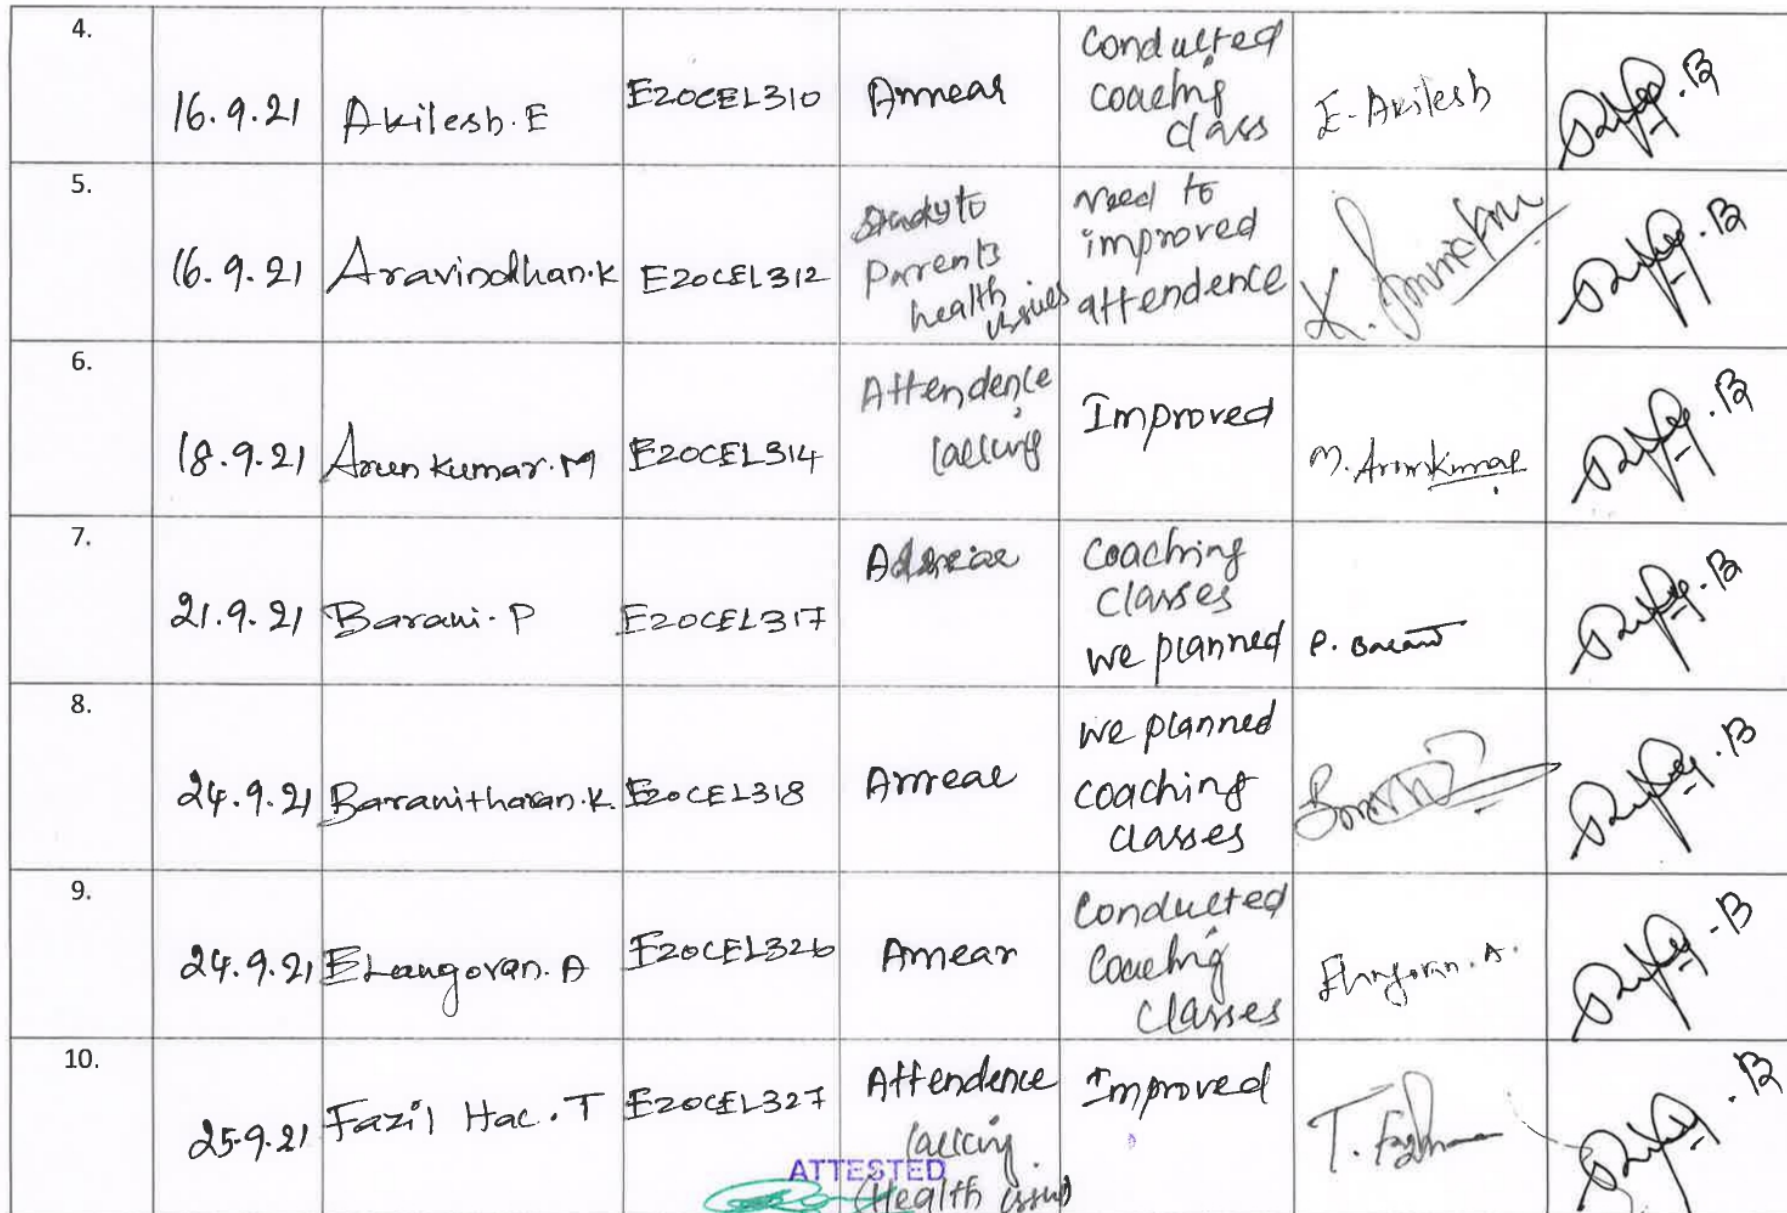 4.
16.9.21 Akilesh.E E20CEL310 Arrear Conducted
coaching
class
E. Akilesh
.B
5.
16.9.21 Aravindhan.K E20CEL312
to
Parents
health
issues
need to
improved
attendence
K.
.B
6.
18.9.21 Arunkumar.M E20CEL314 Attendence
lacking
Improved
M. Arunkumar
.B
7.
21.9.21 Barani.P E20CEL317
Coaching
classes
we planned
P. Barani
.B
8.
24.9.21 Baranitharan.K. E20CEL318 Arrear
we planned
coaching
classes
.B
9.
24.9.21 Elangovan.A E20CEL326 Arrear
Conducted
Coaching
Classes
Elangovan.A.
.B
10.
25.9.21 Fazil Hac.T E20CEL327 Attendence
lacking
Health issues
Improved
T.
.B
ATTESTED